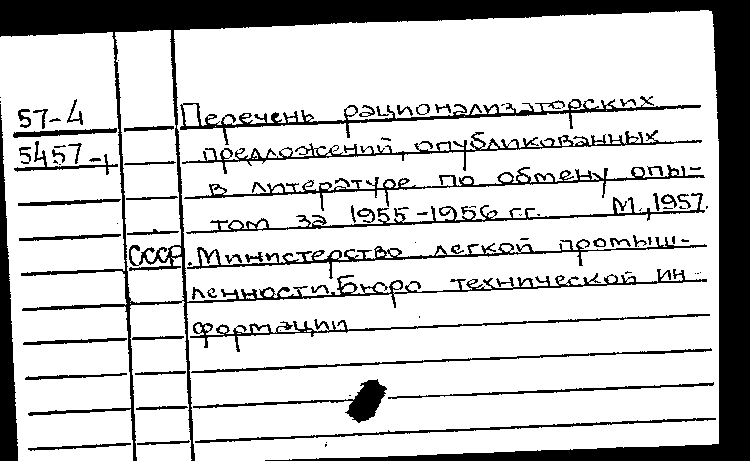 57-4 Перечень рационализаторских
5457-1 предложений, опубликованных
в литературе по обмену опы-
том за 1955-1956 гг. М., 1957.
СССР. Министерство легкой промыш-
ленности. Бюро технической ин-
формации